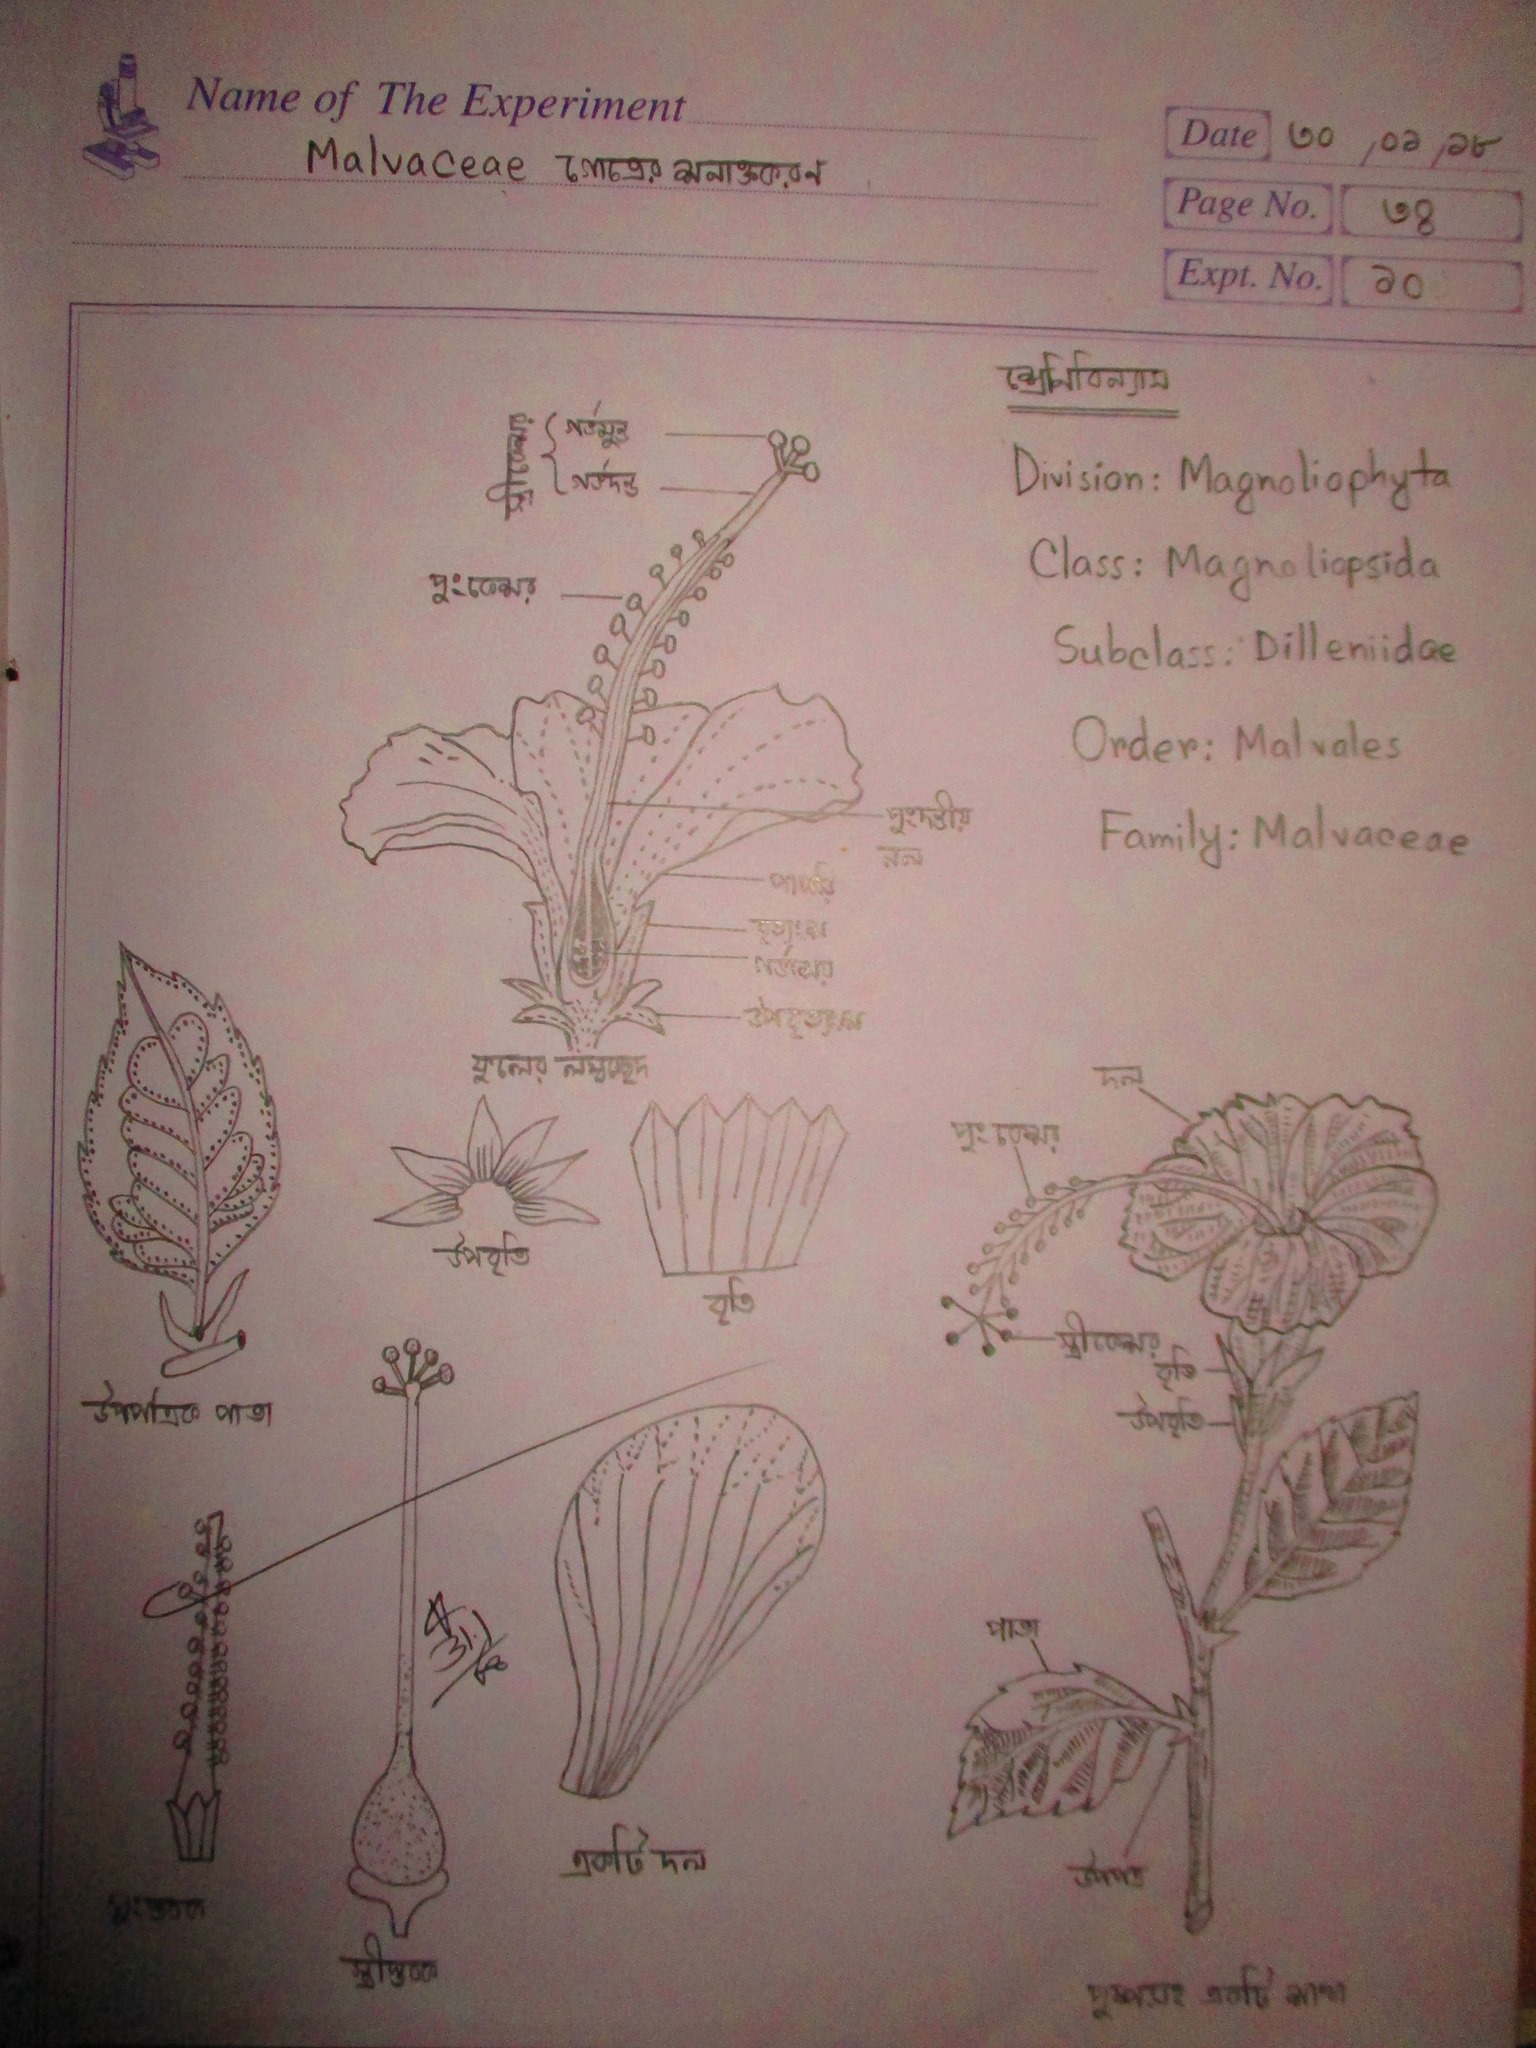 Name of The Experiment
Malvaceae গোত্রের শনাক্তকরণ
Date ৩০ , ০১ , ১৮
Page No. ৩৪
Expt. No. ১০
শ্রেণিবিন্যাস
Division: Magnoliophyta
Class: Magnoliopsida
Subclass: Dilleniidae
Order: Malvales
Family: Malvaceae
স্ত্রীকেশর
গর্ভমুণ্ড
গর্ভদণ্ড
পুংকেশর
পুংদণ্ডীয়
নল
পাপড়ি
বৃত্যংশ
গর্ভাশয়
উপবৃত্যংশ
ফুলের লম্বচ্ছেদ
উপবৃতি
বৃতি
উপপত্রিক পাতা
দল
পুংকেশর
স্ত্রীকেশর
বৃতি
উপবৃতি
পাতা
উপপত্র
পুংস্তবক
স্ত্রীস্তবক
একটি দল
পুষ্পসহ একটি শাখা